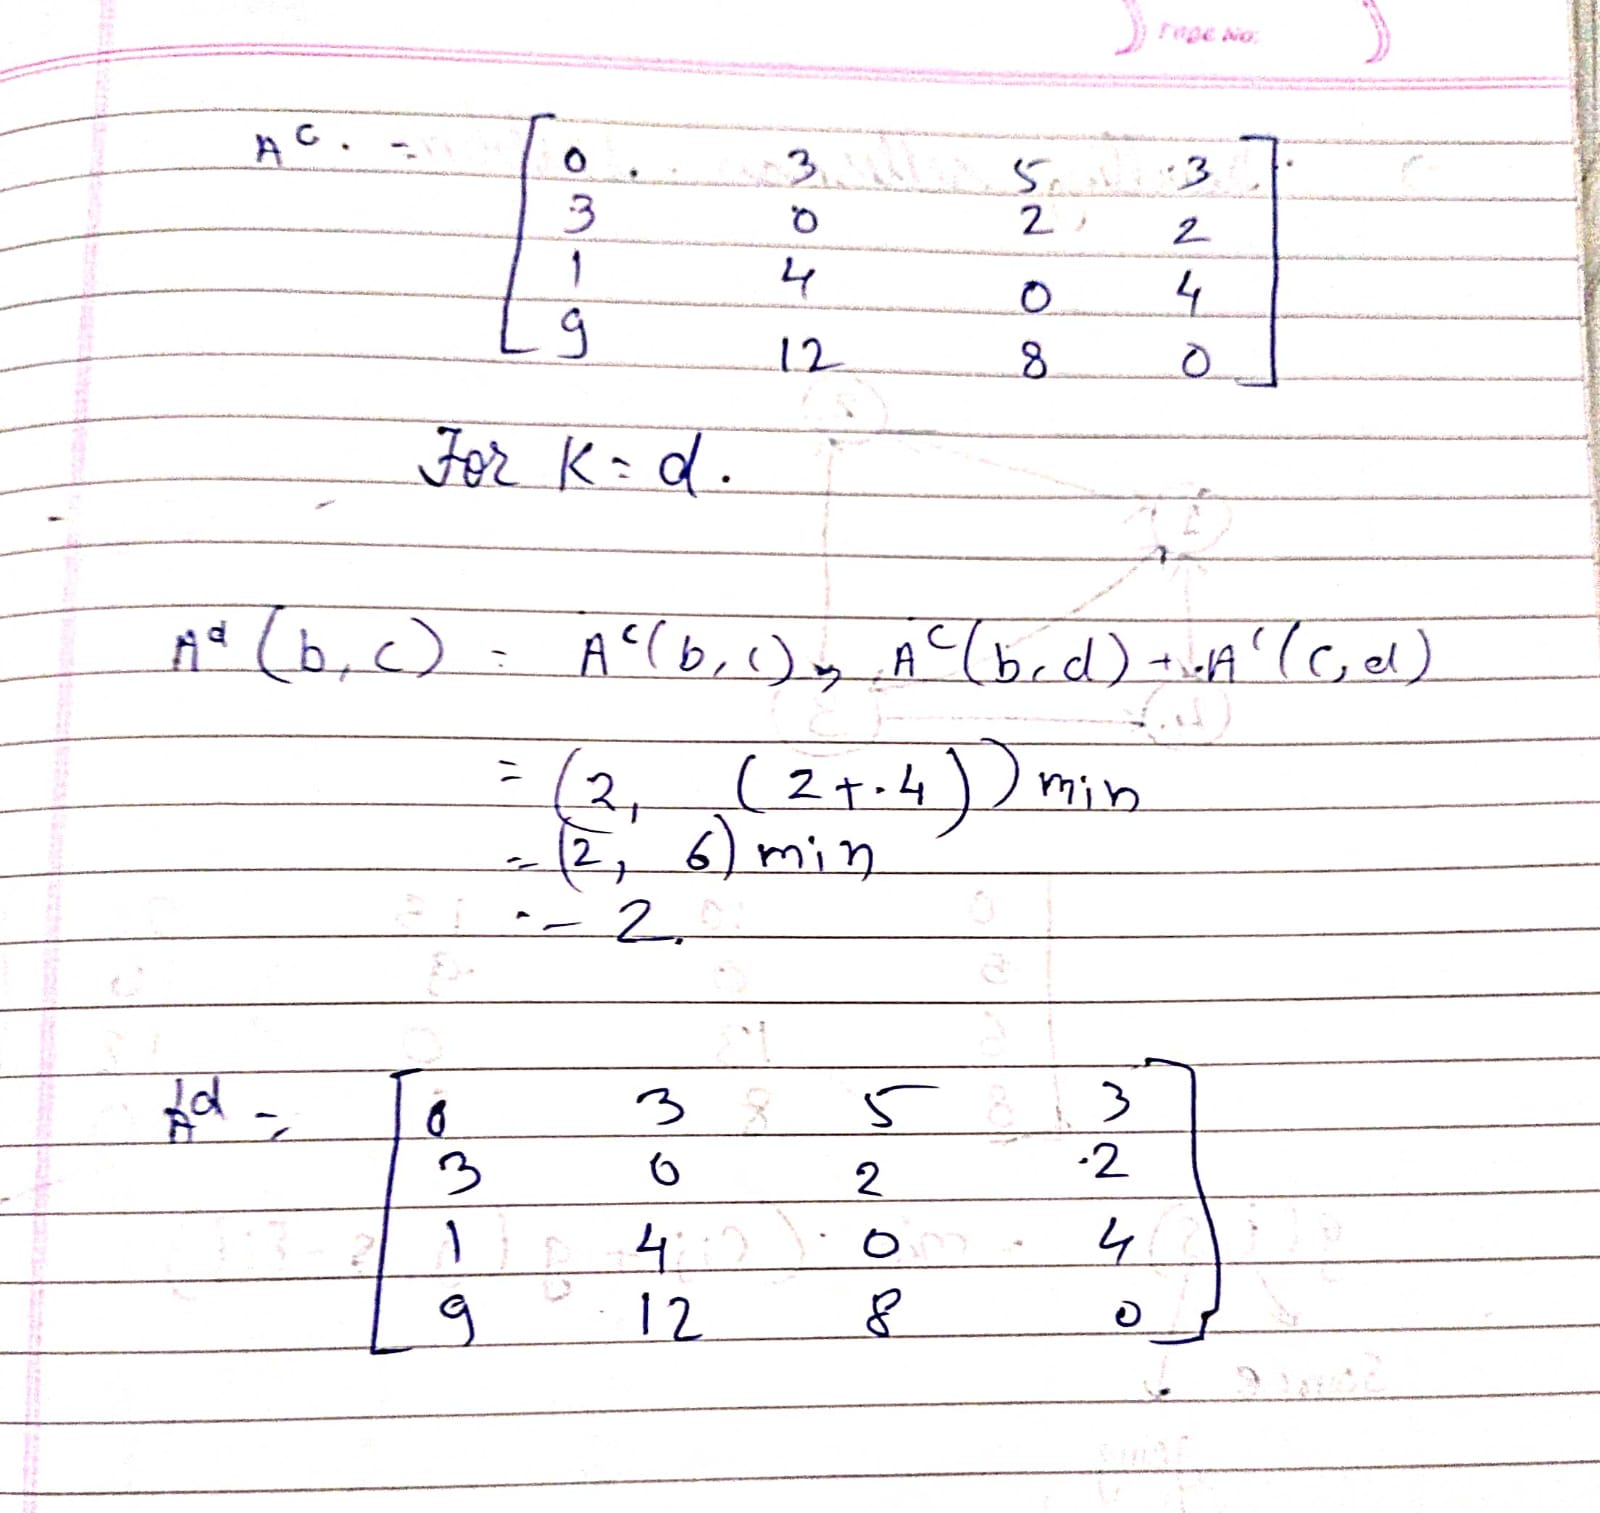 Page No.
A^c. =
0 3 5 3
3 0 2 2
1 4 0 4
9 12 8 0
For K = d.
A^d (b, c) = A^c(b, c), A^c(b, d) + A^c(c, d)
= (2, (2 + 4)) min
= (2, 6) min
= 2.
A^d =
0 3 5 3
3 0 2 2
1 4 0 4
9 12 8 0